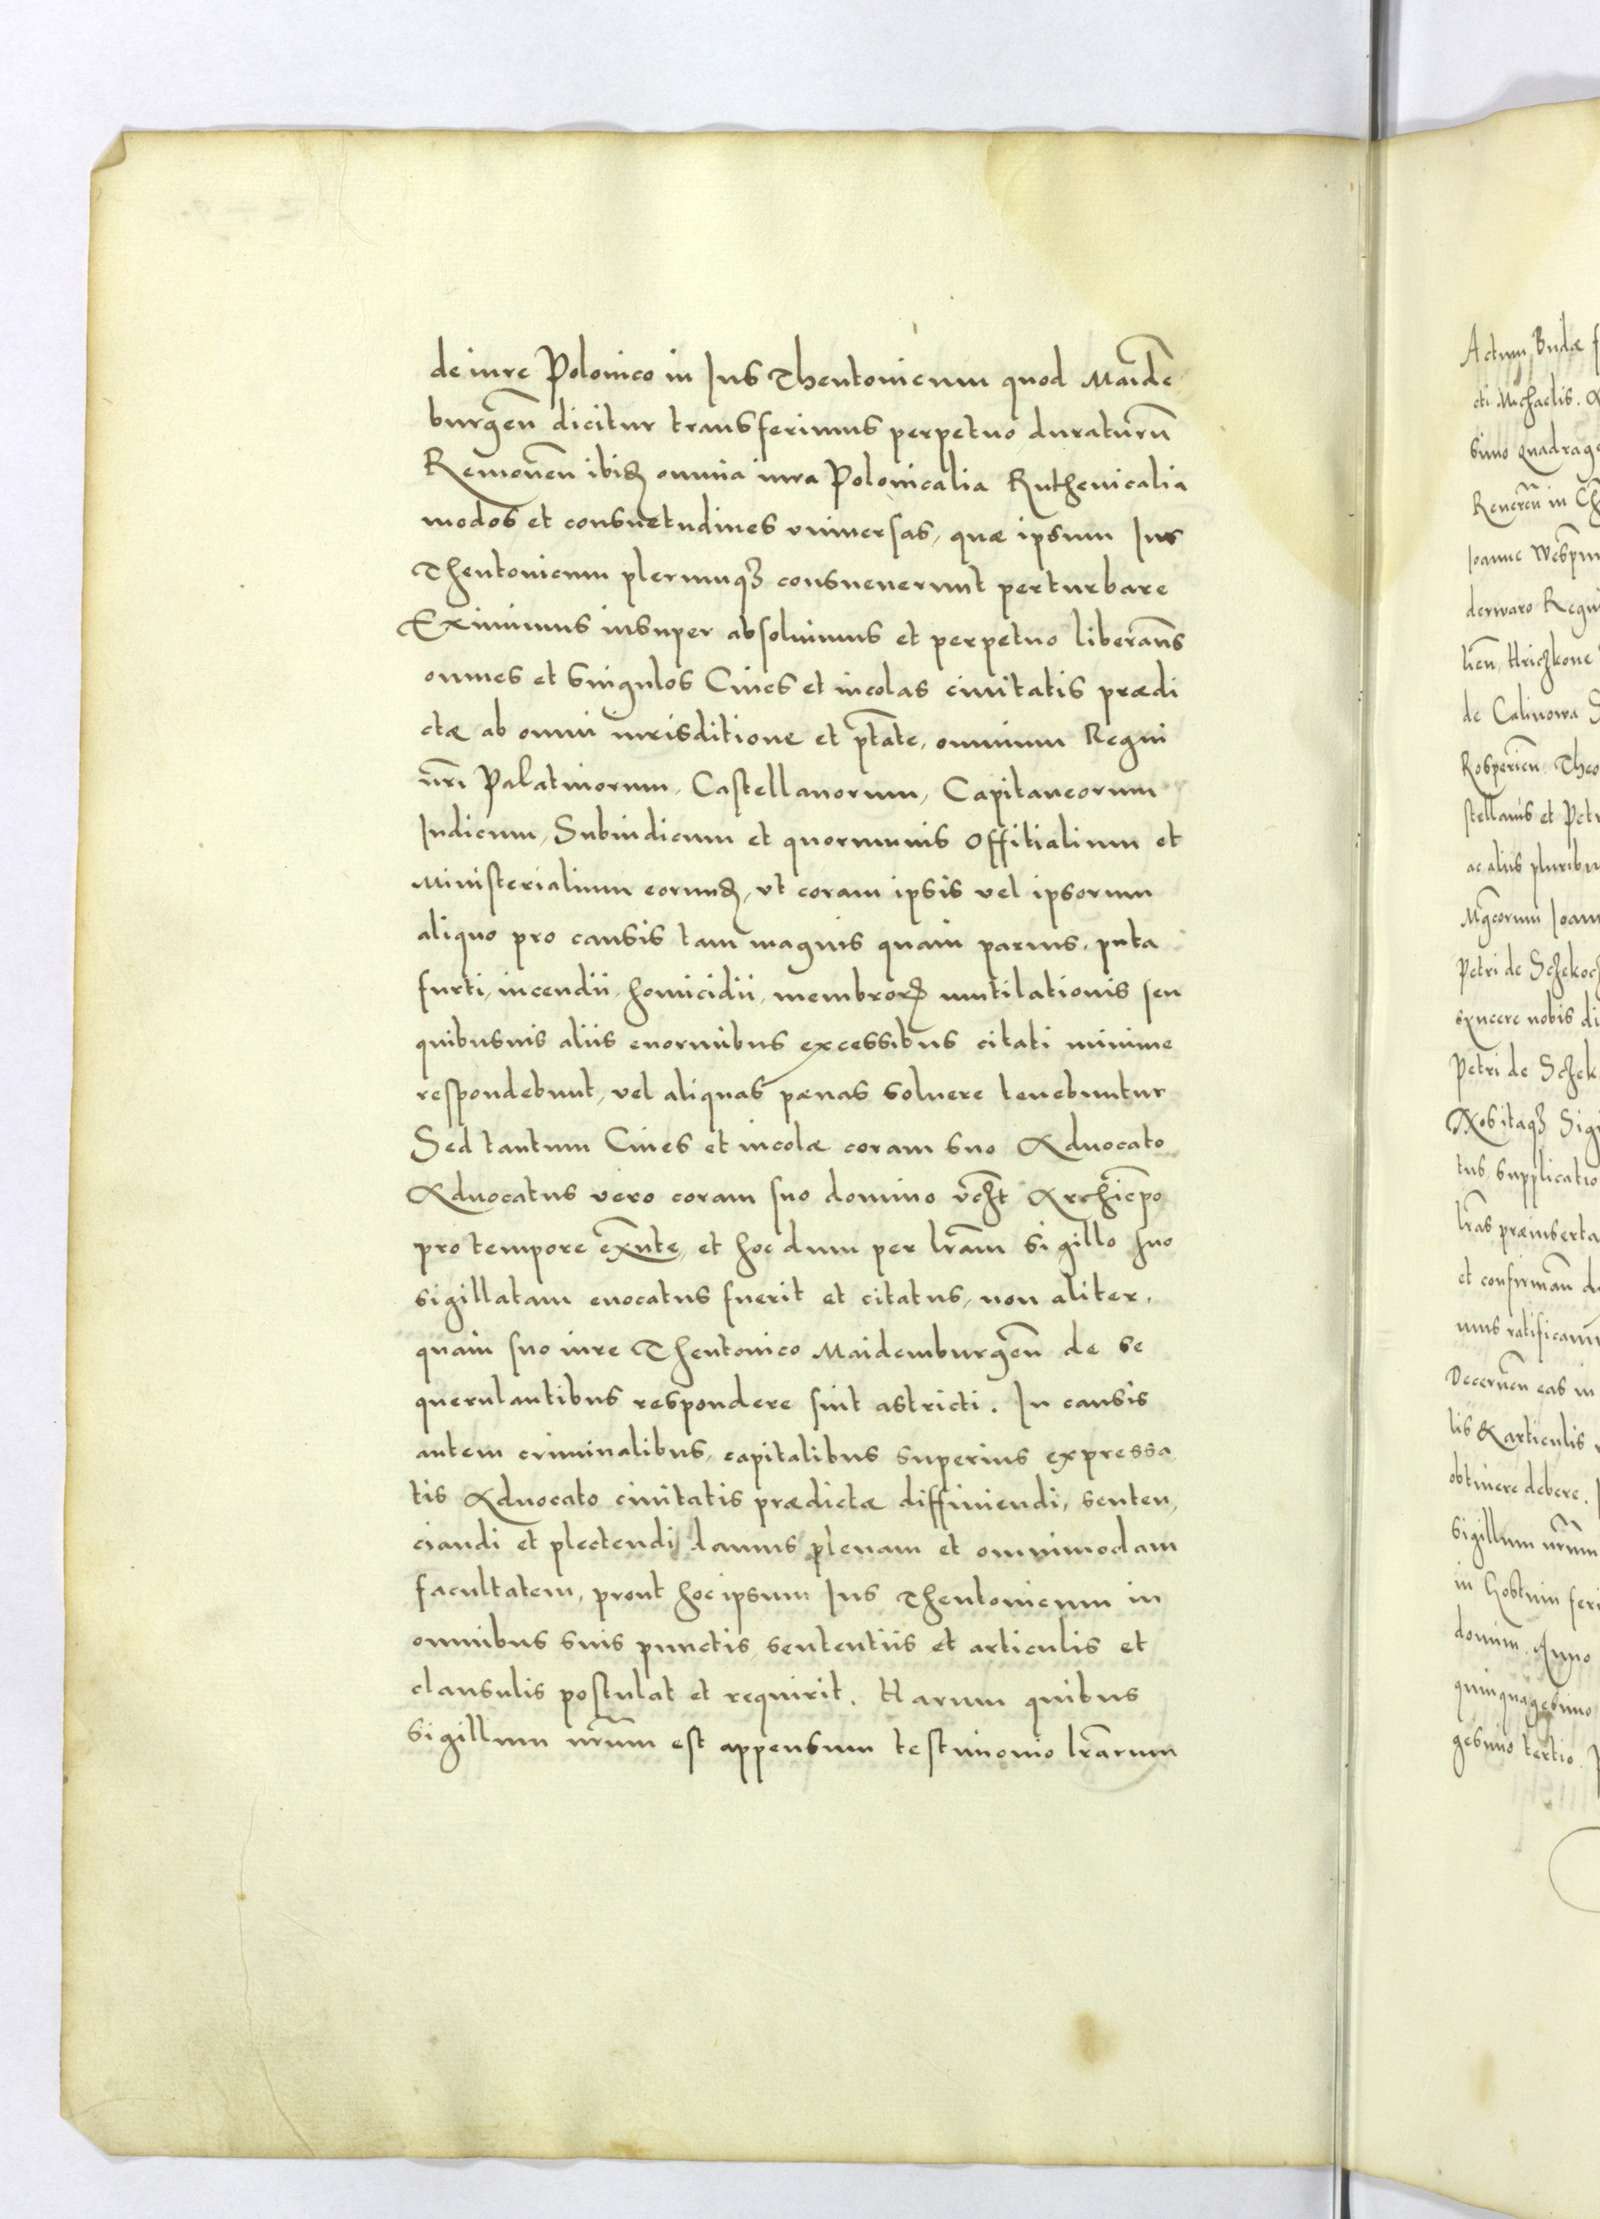 de iure Polonico in Ius Theutonicum quod Maide
burgeñ dicitur transferimus perpetuo duraturũ
Remoueñ ibiđ omnia iura Polonicalia Ruthenicalia
modos et consuetudines vniuersas, quæ ipsum Ius
Theutonicum plerumqꝫ consueuerunt perturbare
Eximimus insuper absoluimus et perpetuo liberam̃s
omnes et singulos Ciues et incolas ciuitatis prædi
ctæ ab omni iurisditione et ptãte, omnium Regni
nr̃i Palatinorum, Castellanorum, Capitaneorum
Iudicum, Subiudicum et quorumuis Offitialium et
Ministerialium eorumđ, vt coram ipsis vel ipsorum
aliquo pro causis tam magnis quam paruis, puta
furti, incendii, homicidii, membrorꝫ mutilationis seu
quibusuis aliis enormibus excessibus citati minime
respondebunt, vel aliquas pænas soluere tenebuntur
Sed tantum Ciues et incolæ coram suo Aduocato
Aduocatus vero coram suo domino vcꝫt Archiep̃o
pro tempore exñte, et hoc dum per lr̃am sigillo suo
sigillatam euocatus fuerit et citatus, non aliter,
quam suo iure Theutonico Maidemburgeñ de se
querulantibus respondere sint astricti. In causis
autem criminalibus, capitalibus superius expressa
tis Aduocato ciuitatis prædictæ diffiniendi, senten,
ciandi et plectendi damus plenam et omnimodam
facultatem, prout hoc ipsum Ius Theutonicum in
omnibus suis punctis, sententiis et articulis et
clausulis postulat et requirit. Harum quibus
sigillum nr̃um est appensum testimonio lr̃arum
Actum Budæ
cti Michaelis.
simo quadrag
Reuereñ in
Ioanne Wesprim
derwaro Regni
lieñ, Hriczkone
de Calinowa
Rosperieñ. Theo
stellanis et Petr
ac aliis pluribu
Mg̃corum Ioan
Petri de Sczekocz
syncere nobis di
Petri de Sczek
Nos itaqꝫ Sigi
tus, supplicatio
lr̃as præinserta
et confirmañ d
mus ratificam
Decerneñ eas in
lis & articulis
obtinere debere.
sigillum nr̃um
in
domini. Anno
quinquagesimo
gesimo tertio.